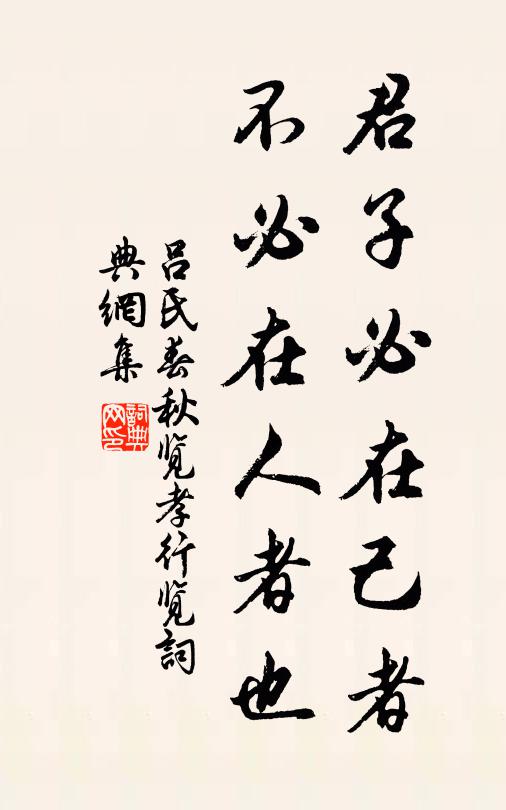 君子必在己者
不必在人者也
吕氏春秋览孝行览詞
典網集
詞典网印